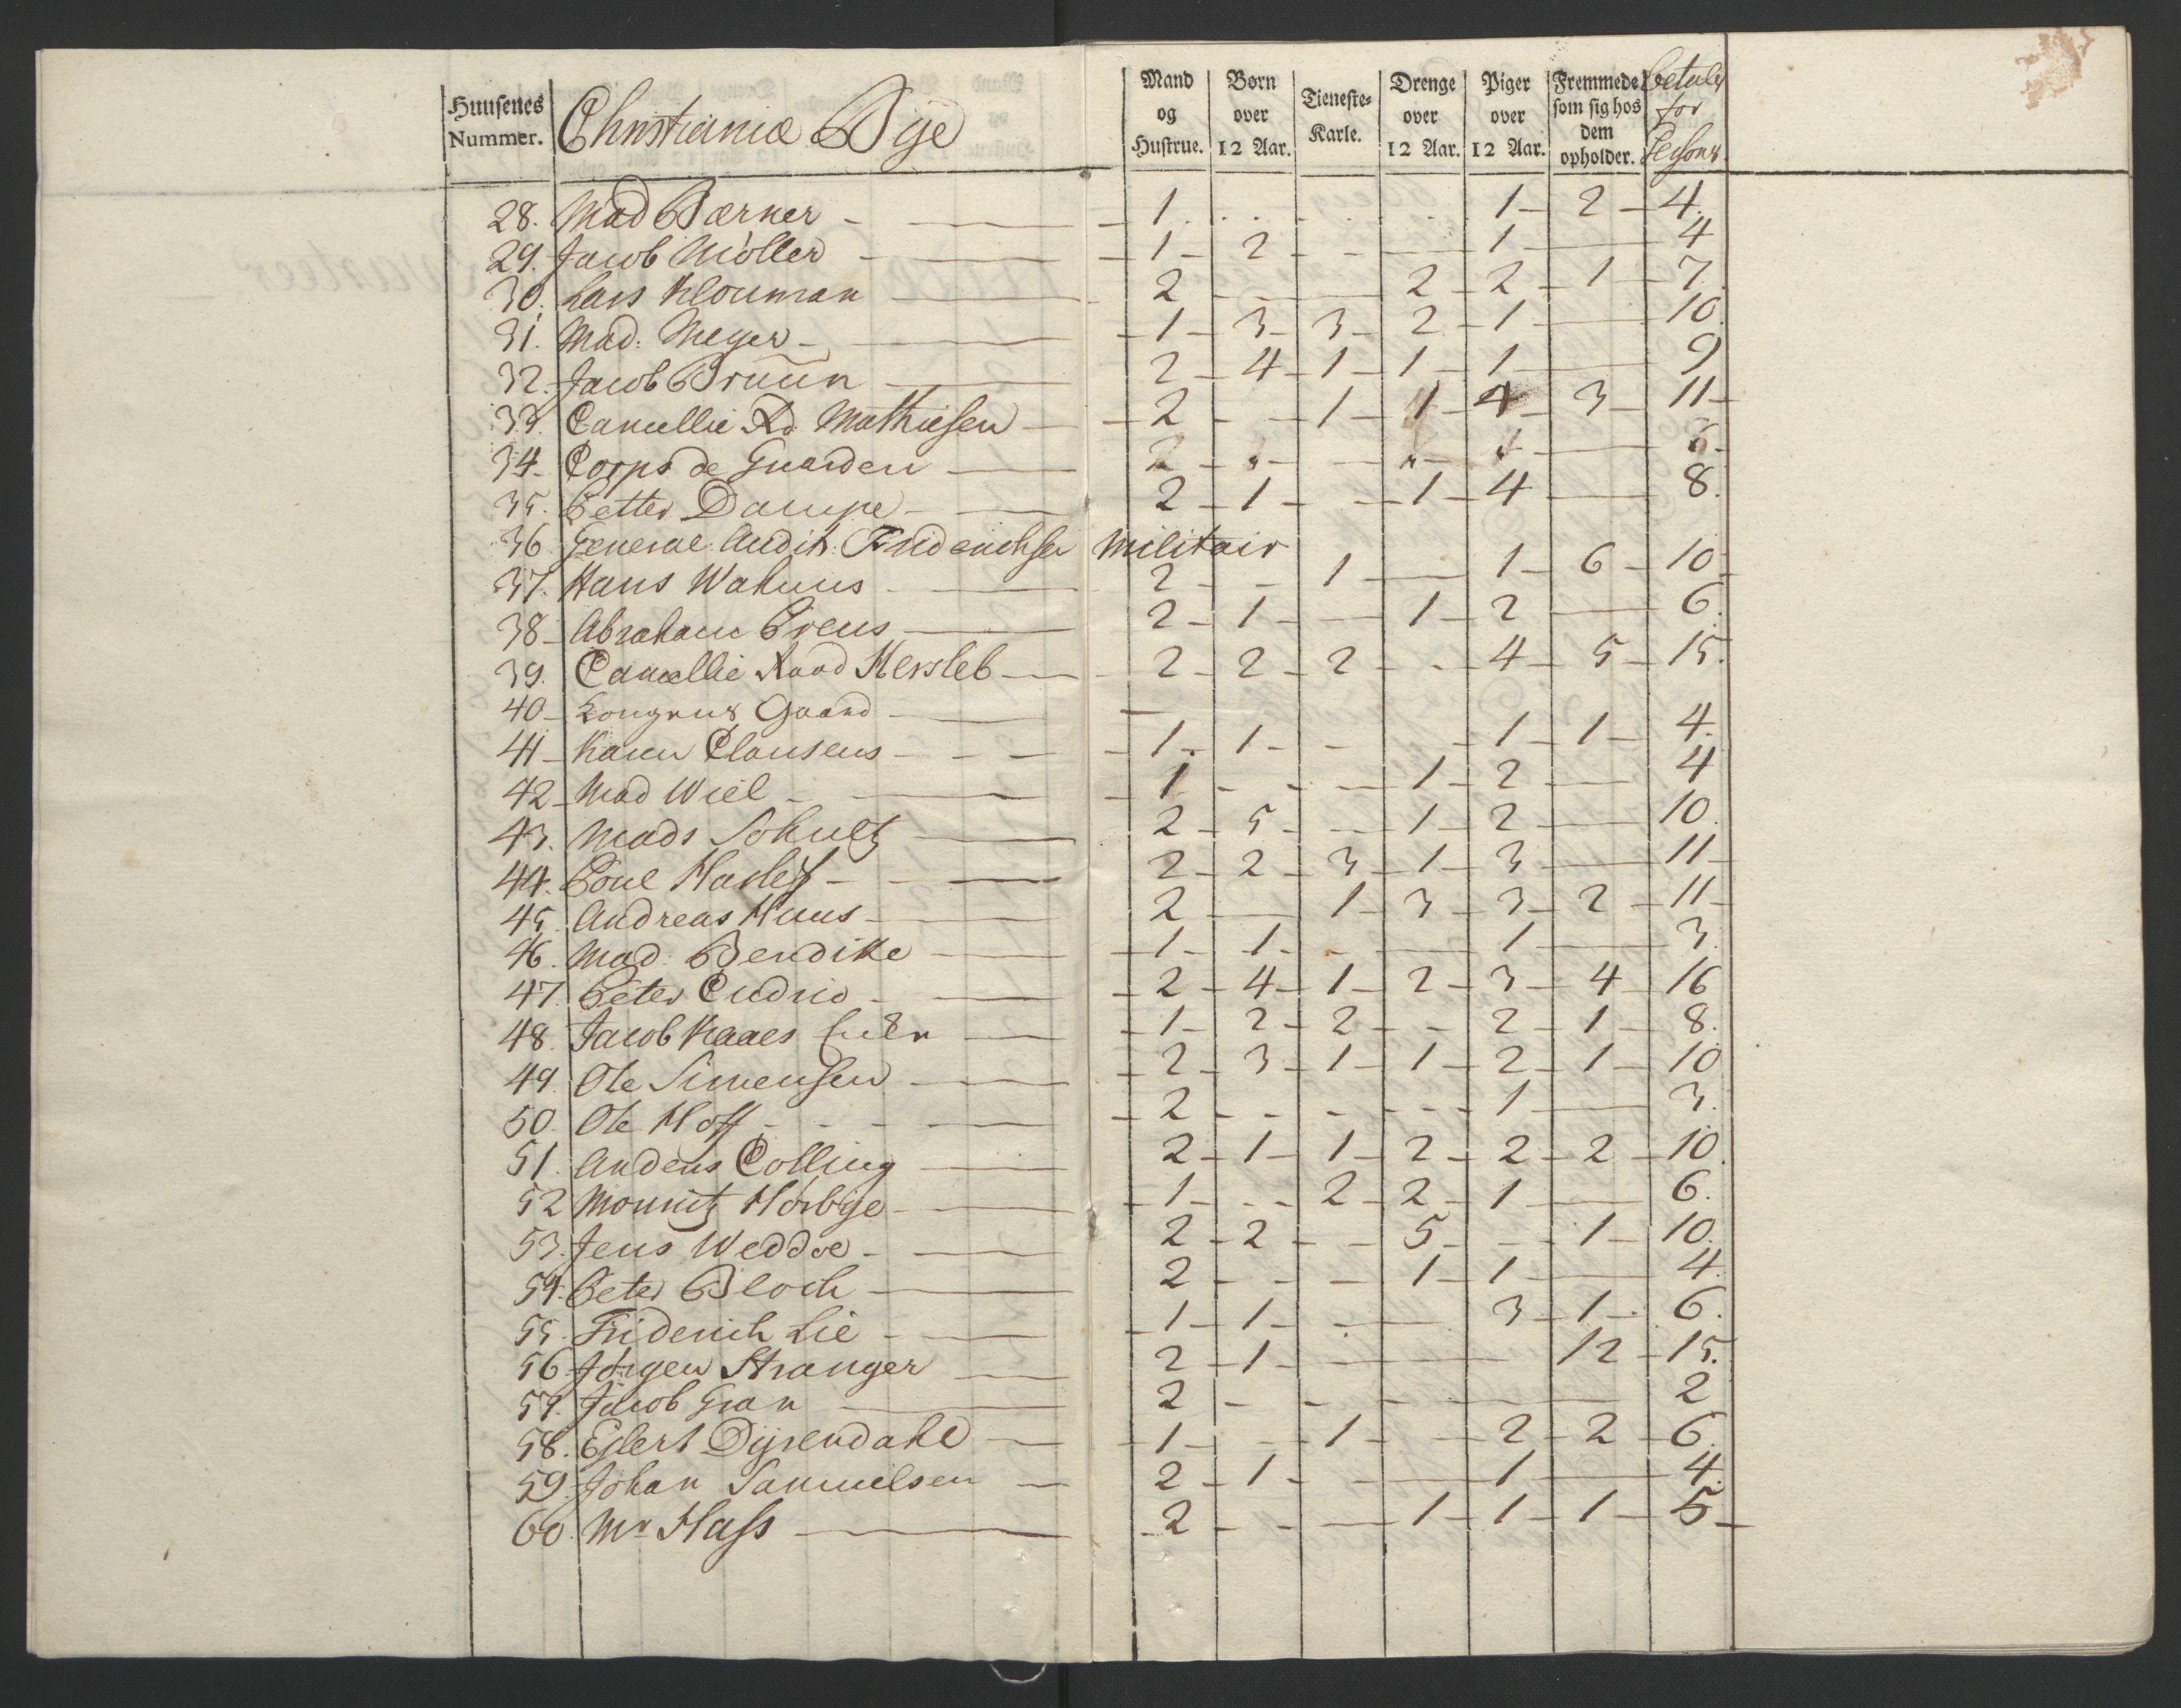 Huusenes Nummer. Christiania Bÿe Mand og Hustrue. Børn over 12 Aar. Tieneste-Karle. Drenge over 12 Aar. Piger over 12 Aar. Fremmede som sig hos dem opholder. betaler for Persons.
28. Mad Bærner - 1 . . . . 1 - 2 - 4.
29. Jacob Møller - 1 - 2 - - 1 - 4
30. Lars Klouman 2 - - 2 - 2 - 1 - 7.
31. Mad: Meyer - 1 - 3 - 3 - 2 - 1 - 10.
32. Jacob Bruun 2 - 4 - 1 - 1 - 1 - 9
33. Cancellie Rd Mathiesen - 2 - - 1 - 1 - 4 - 3 - 11 -
34 - Corps de Guarden
35. Petter Dampe - 2 - 1 - - 1 - 4 - 8.
36. General Audit: Friderichsen Militair
37. Hans Wahnus - 2 - - 1 - 1 - 6 - 10 -
38 - Abraham Preus - 2 - 1 - 1 - 2 - 6.
39. Cancellie Raad Hersleb - 2 - 2 - 2 - - 4 - 5 - 15.
40 - Kongens Gaard -
41 - Karen Clausens - - - 1 - 1 - - - 1 - 1 - 4.
42 - Mad Wiel - 1 - - - 1 - 2 - 4
43. Mads Schultz 2 - 5 - - 1 - 2 - 10.
44. Poul Harlef - 2 - 2 - 3 - 1 - 3 - 11 -
45. Andreas Huus - 2 - 1 - 3 - 3 - 2 - 11 -
46. Mad: Bendike - 1 - 1 - - 1 - 3.
47. Peter Cudrio - 2 - 4 - 1 - 2 - 3 - 4 - 16
48. Jacob Kaaes - 1 - 2 - 2 - - 2 - 1 - 8.
49. Ole Simensen - 2 - 3 - 1 - 1 - 2 - 1 - 10
50. Ole Hoff - - - 2 - - - - - 1 - 3.
51. Anders Colling 2 - 1 - 1 - 2 - 2 - 2 - 10.
52 Mouritz Hørbye - 1 - - 2 - 2 - 1 - 6.
53. Jens Weddoe - 2 - 2 - - 5 - - 1 - 10.
54. Peter Bloch 2 - - - 1 - 1 - 4.
55. Friderich Lie - 1 - 1 - - 3 - 1 - 6.
56 Jørgen Stranger 2 - 1 - 12 - 15.
57. Jacob Gran 2 - - - 2
58. Ejlert Dyrendahl 1 - - 1 - 2 - 2 - 6.
59. Johan Samuelsen 2 - 1 - - 1 - 4.
60. Mr Hass - 2 - - 1 - 1 - 1 - 5 -